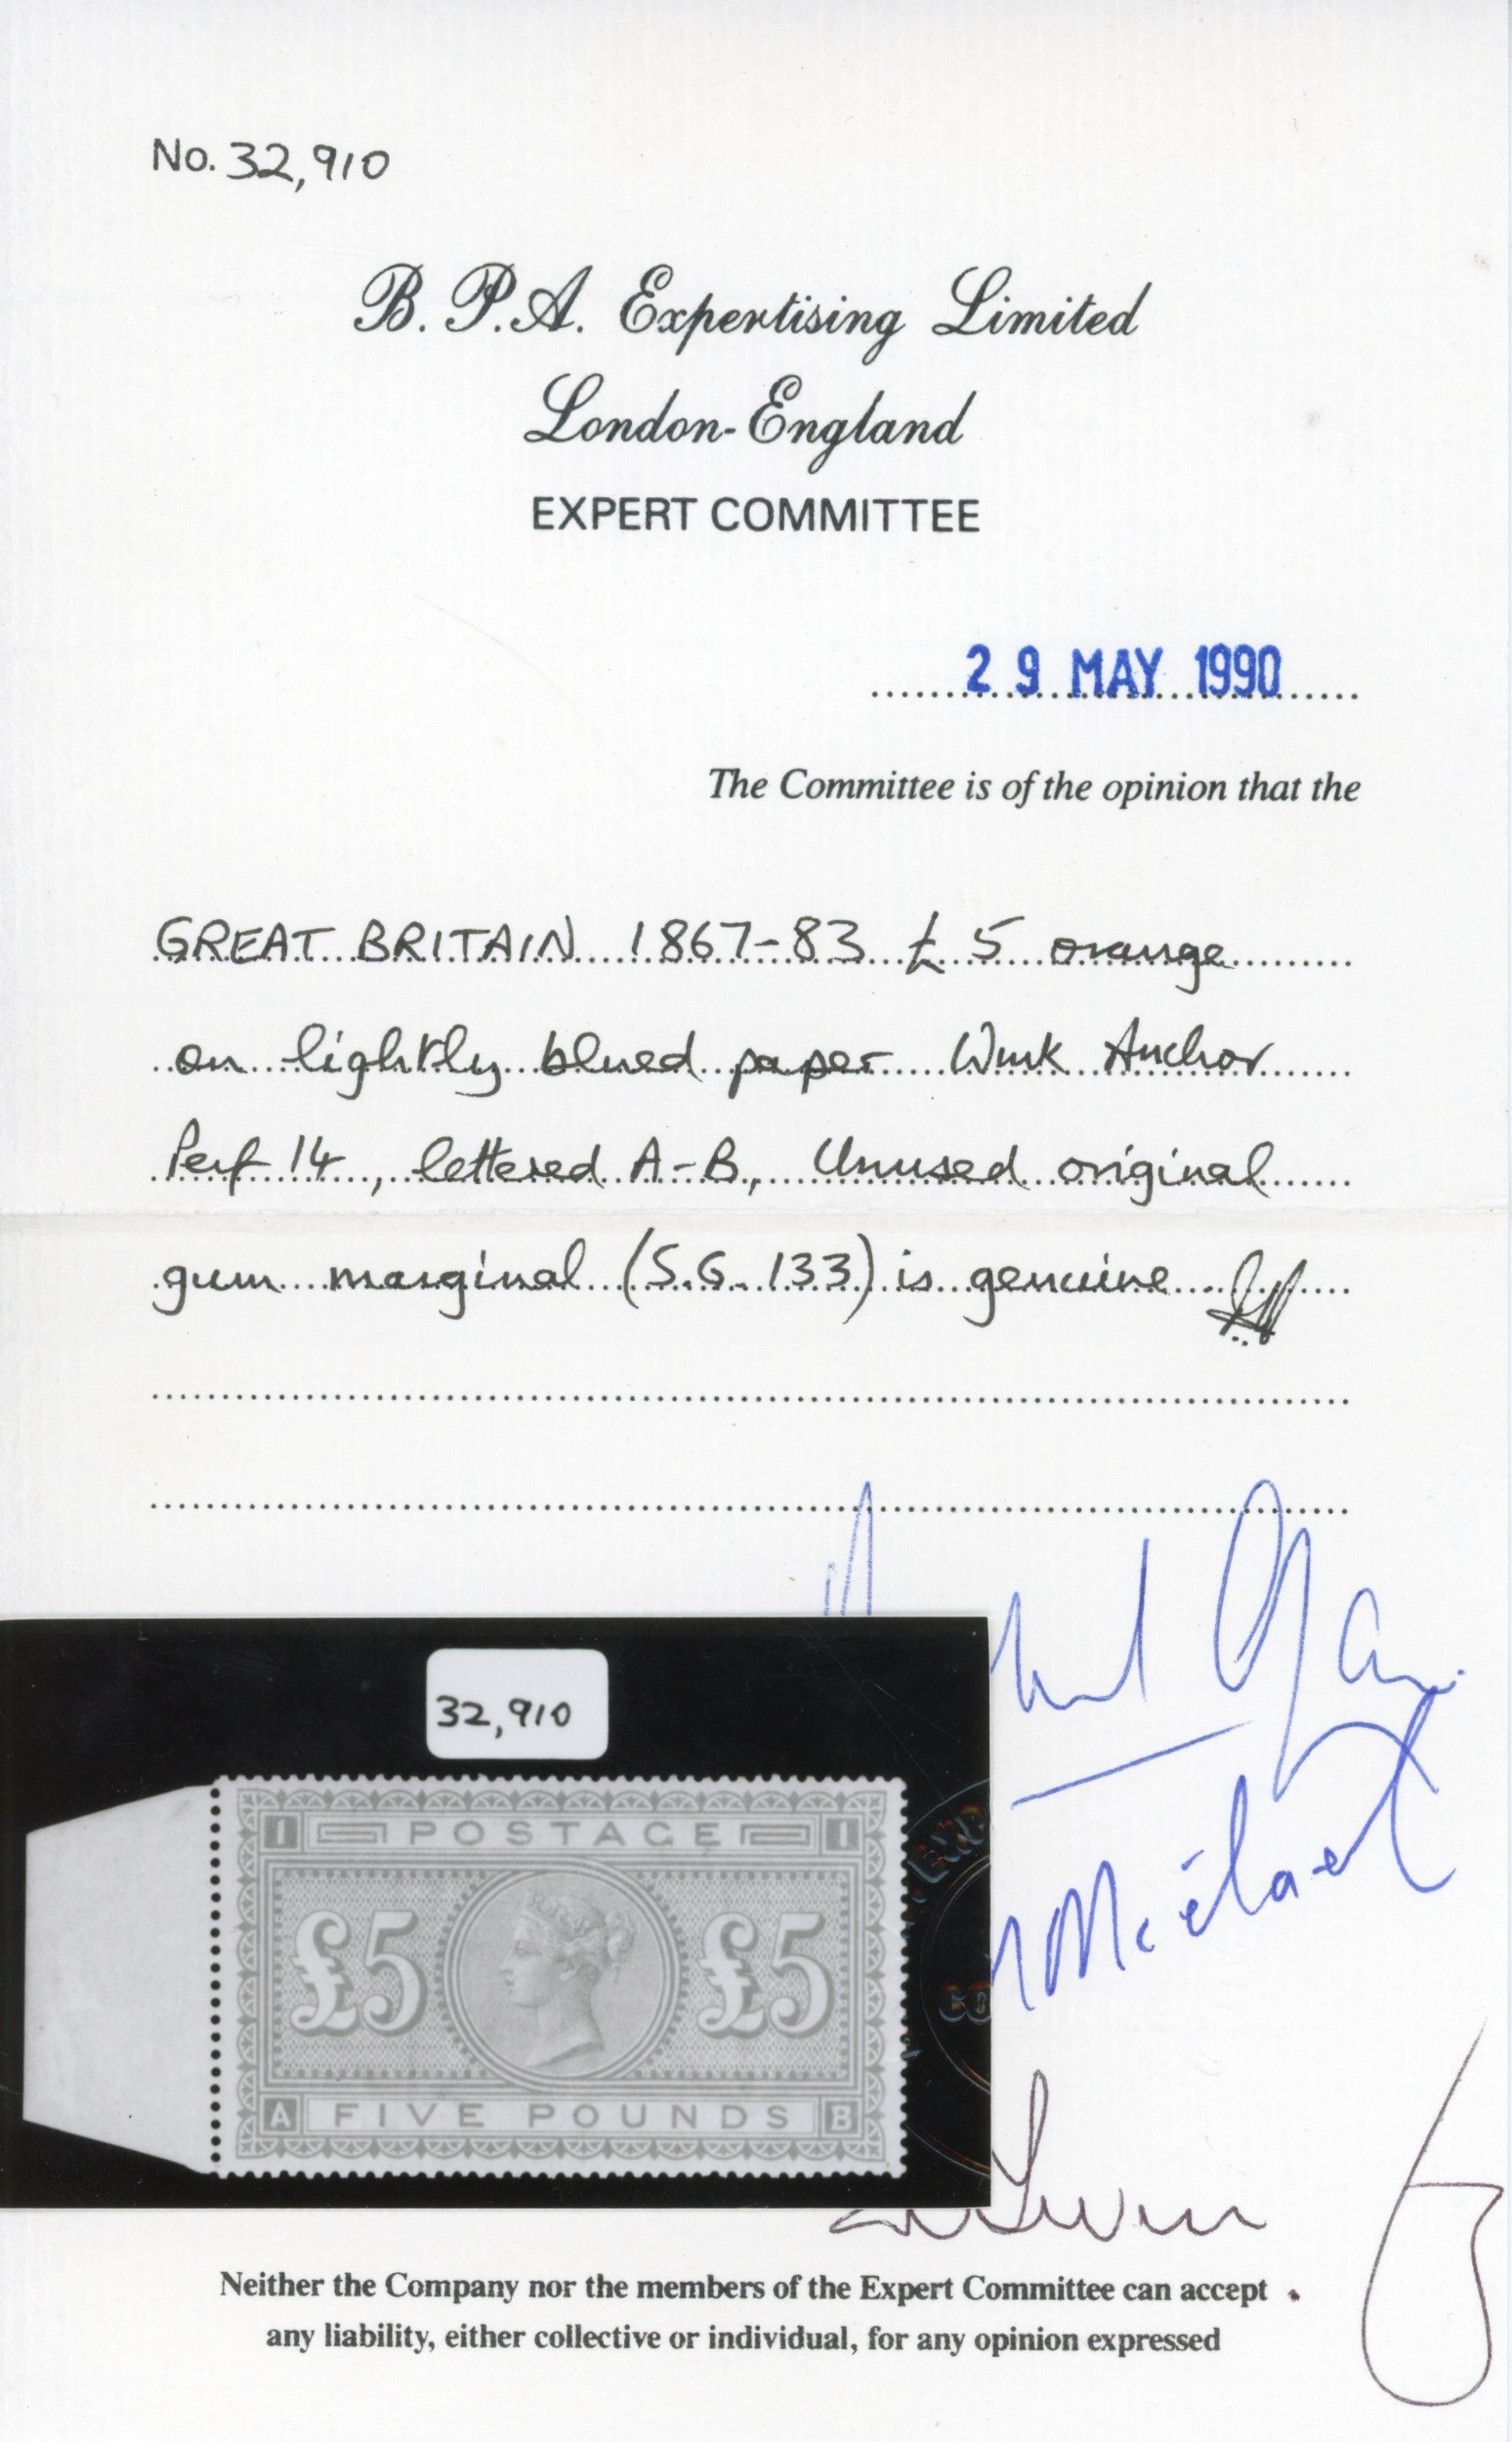 No. 32,910
B. P. A. Expertising Limited
London-England
EXPERT COMMITTEE
29 MAY 1990
The Committee is of the opinion that the
GREAT BRITAIN 1867-83 £5 orange
on lightly blued paper Wmk Anchor
Perf 14, lettered A-B, Unused original
gum marginal (S.G. 133) is genuine
32,910
I POSTAGE I
£5 £5
A FIVE POUNDS B
Neither the Company nor the members of the Expert Committee can accept
any liability, either collective or individual, for any opinion expressed